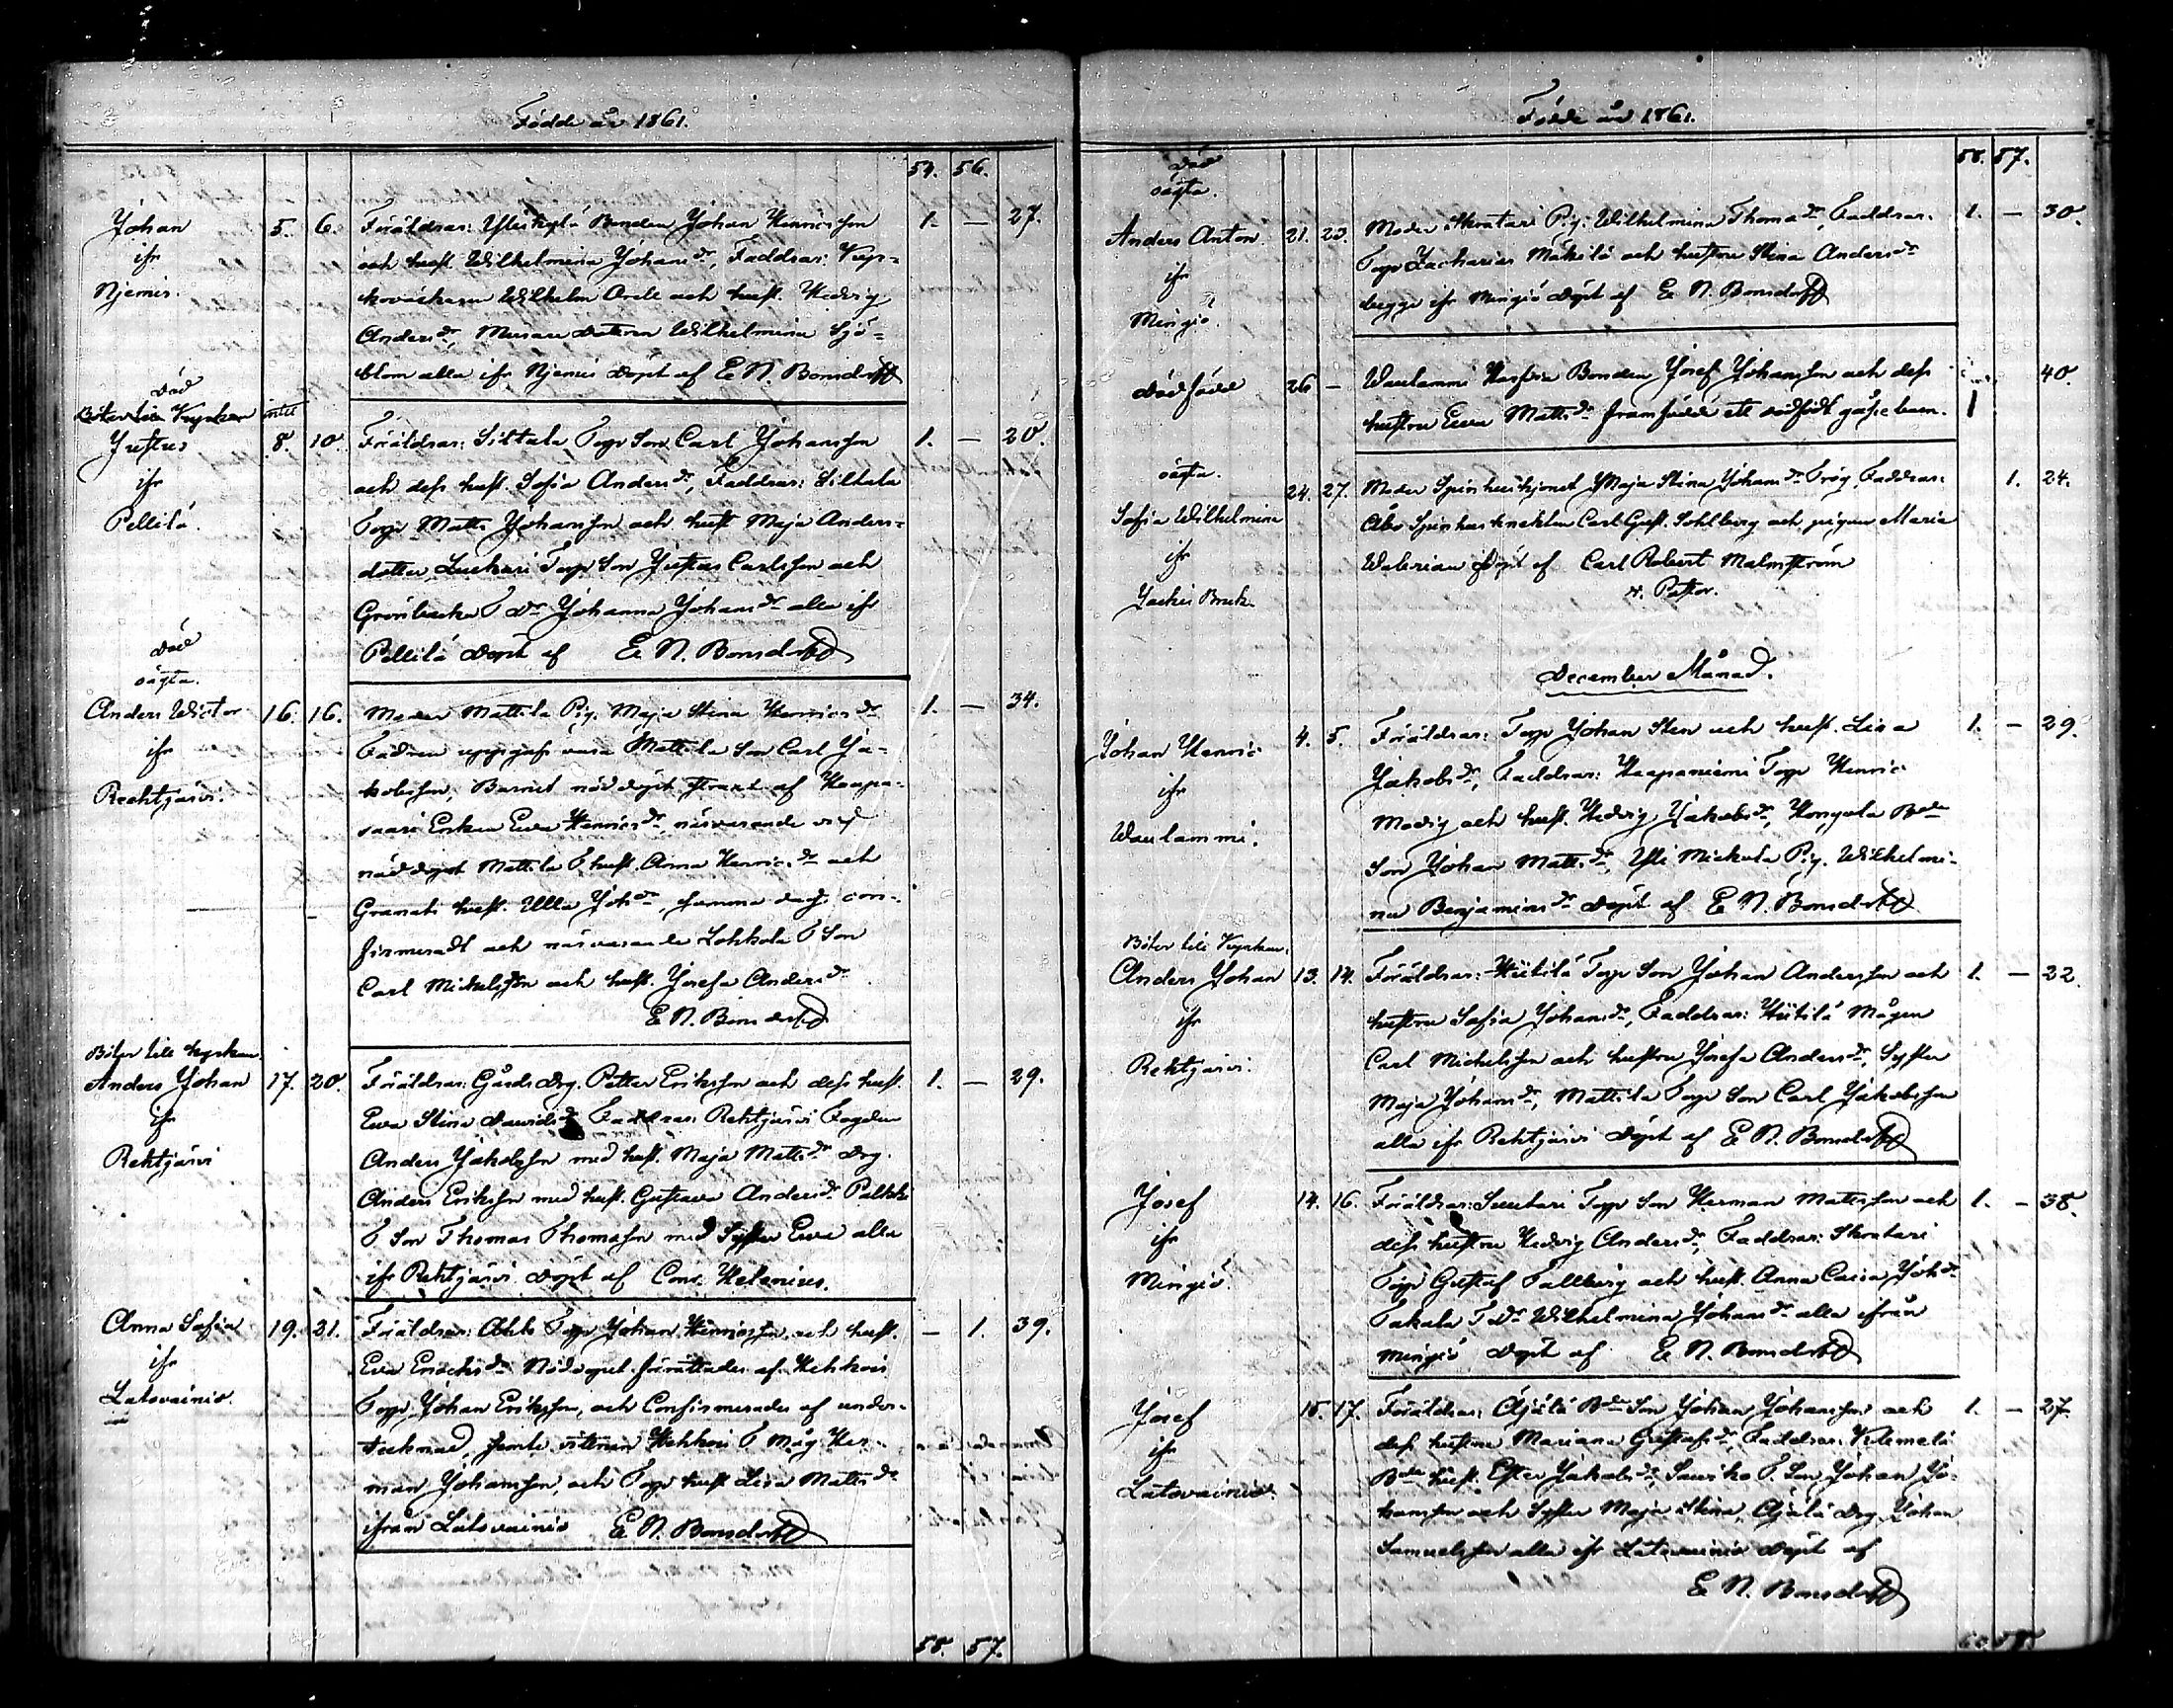 Födde år 1861.
54. 56.
Johan
ifr
Njemis.
5. 6.
Föräldrar: Yliskylä Bonden Johan Henricsson
och hust. Wilhelmina Johansdr, Faddrar: Kup-
Wilhelm och hust. Hedvig
Andersdr, dottern Wilhelmina Sjö-
blom alla ifr Njemis Döpt af E N. Bonsdorff
1. — 27.
död
Böter till Kyrkan
Justus
ifr
Pellilä.
8. 10.
Föräldrar: Siltala Torp Son Carl Johansson
och dess hust. Sofia Andersdr, Faddrar: Siltala
Torp. Matts Johansson och hust Maja Anders-
dotter, Torp Son Justus Carlsson och
Grönbacka T Dr Johanna Johansdr alla ifr
Pellilä Döpt af E N. Bonsdorff
1. — 20.
död
oägta.
Anders Victor
ifr
Rechtjärvi.
16. 16.
Moder Mattila Pig. Maja Stina Henricsdr
Fadren uppgafs vara Mattila Son Carl Ja-
kobsson, Barnet nöddöpt straxt af Haapa-
saari Enkan Eva Henricsdr, närvarande vid
nöddopet Mattila T hust. Anna Henricsdr och
Granats hust. Ulla Johdr, samma dag con-
firmeradt och närvarande Lohkola T Son
Carl Michelsson och hust. Josefa Andersdr
E N. Bonsdorff
1. — 34.
Böter till kyrkan
Anders Johan
ifr
Rehtjärvi
17. 20.
Föräldrar: Gårds Drg. Petter Eriksson och dess hust.
Eva Stina Davidsdr Faddrar: Rehtjärvi Fogden
Anders Jakobsson med hust. Maja Mattsdr Drg.
Anders Eriksson med hust. Gustava Andersdr
T Son Thomas Thomasson med Syster Eva alla
ifr Rehtjärvi Döpt af Conr. Helenius.
1. — 29.
Anna Sofia
ifr
Latovainio.
19. 21.
Föräldrar: Ahlo Torp Johan Henricsson och hust.
Eva Enochsdr Nöddopet förrättades af Hehkois
Torp Johan Eriksson, och Confirmerades af under-
tecknad, jemte vittnen Hehkois T Måg Her-
man Johansson, och Torp hust Lisa Mattsdr
ifrån Latovainio E N. Bonsdorff
— 1. 39.
55. 57.
Födde år 1861.
55. 57.
död
oägta.
Anders Anton
ifr
Mingiö.
21. 23.
Moder Skratari Pig: Wilhelmina Thomasdr, Faddrar:
Torp Zacharias Mäkilä och hustru Stina Andersdr
begge ifr Mingiö Döpt af E N. Bonsdorff
1. — 30.
dödfödde
26 —
Waulammi Bonden Josef Johansson och dess
hustru Eva Mattsdr framfödde ett dödfödt gåssebarn.
1 40.
oägta.
Sofia Wilhelmina
ifr
Jockis Bruk.
24. 27.
Moder Spinhushjonet Maja Stina Johansdr Frög, Faddrar:
Åbo Spinhus knekten Carl Gust. Sohlberg och pigan Maria
Walerian Döpt af Carl Robert Malmström
v. Pastor.
1. 24.
December Månad.
Johan Henric
ifr
Waulammi.
4. 5.
Föräldrar: Torp Johan Sten och hust. Lisa
Jakobsdr, Faddrar: Haapaniemi Torp Henric
Modig och hust. Hedvig Jakobsdr, Bde
Son Johan Mattsdr, Yli Mickola Pig. Wilhelmi-
na Benjaminsdr Döpt af E N. Bonsdorff
1. — 29.
Böter till Kyrkan.
Anders Johan
ifr
Rehtjärvi.
13. 14.
Föräldrar: Hiitilä Torp Son Johan Andersson och
hustru Sofia Johansdr, Faddrar: Hiitilä Mågen
Carl Michelsson och hustru Josefa Andersdr, Syster
Maja Johansdr, Mattila Torp Son Carl Jakobsson
alla ifr Rehtjärvi Döpt af E N. Bonsdorff
1. — 22.
Josef
ifr
Mingiö.
14. 16.
Föräldrar: Suutari Torp Son Herman Mattsson och
dess hustru Hedvig Andersdr, Faddrar: Skratari
Torp Gustaf Tallberg och hust. Anna Caisa Johdr
Takala T Dr Wilhelmina Johansdr alla ifrån
Mingiö Döpt af E N. Bonsdorff
1. — 38.
Josef
ifr
Latovainio.
15. 17.
Föräldrar: Äjälä Bde Son Johan Johansson och
dess hustru Mariana Gustafsdr, Faddrar: Klemelä
Bde hust. Ester Jakobsdr, T. Son Johan Jo-
hansson och Syster Maja Stina, Äjälä Drg Johan
Samuelsson alla ifr Latovainio Döpt af
E N. Bonsdorff
1. — 27.